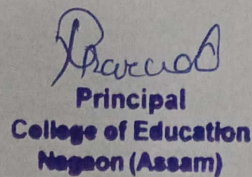 Principal
College of Education
Nagaon (Assam)